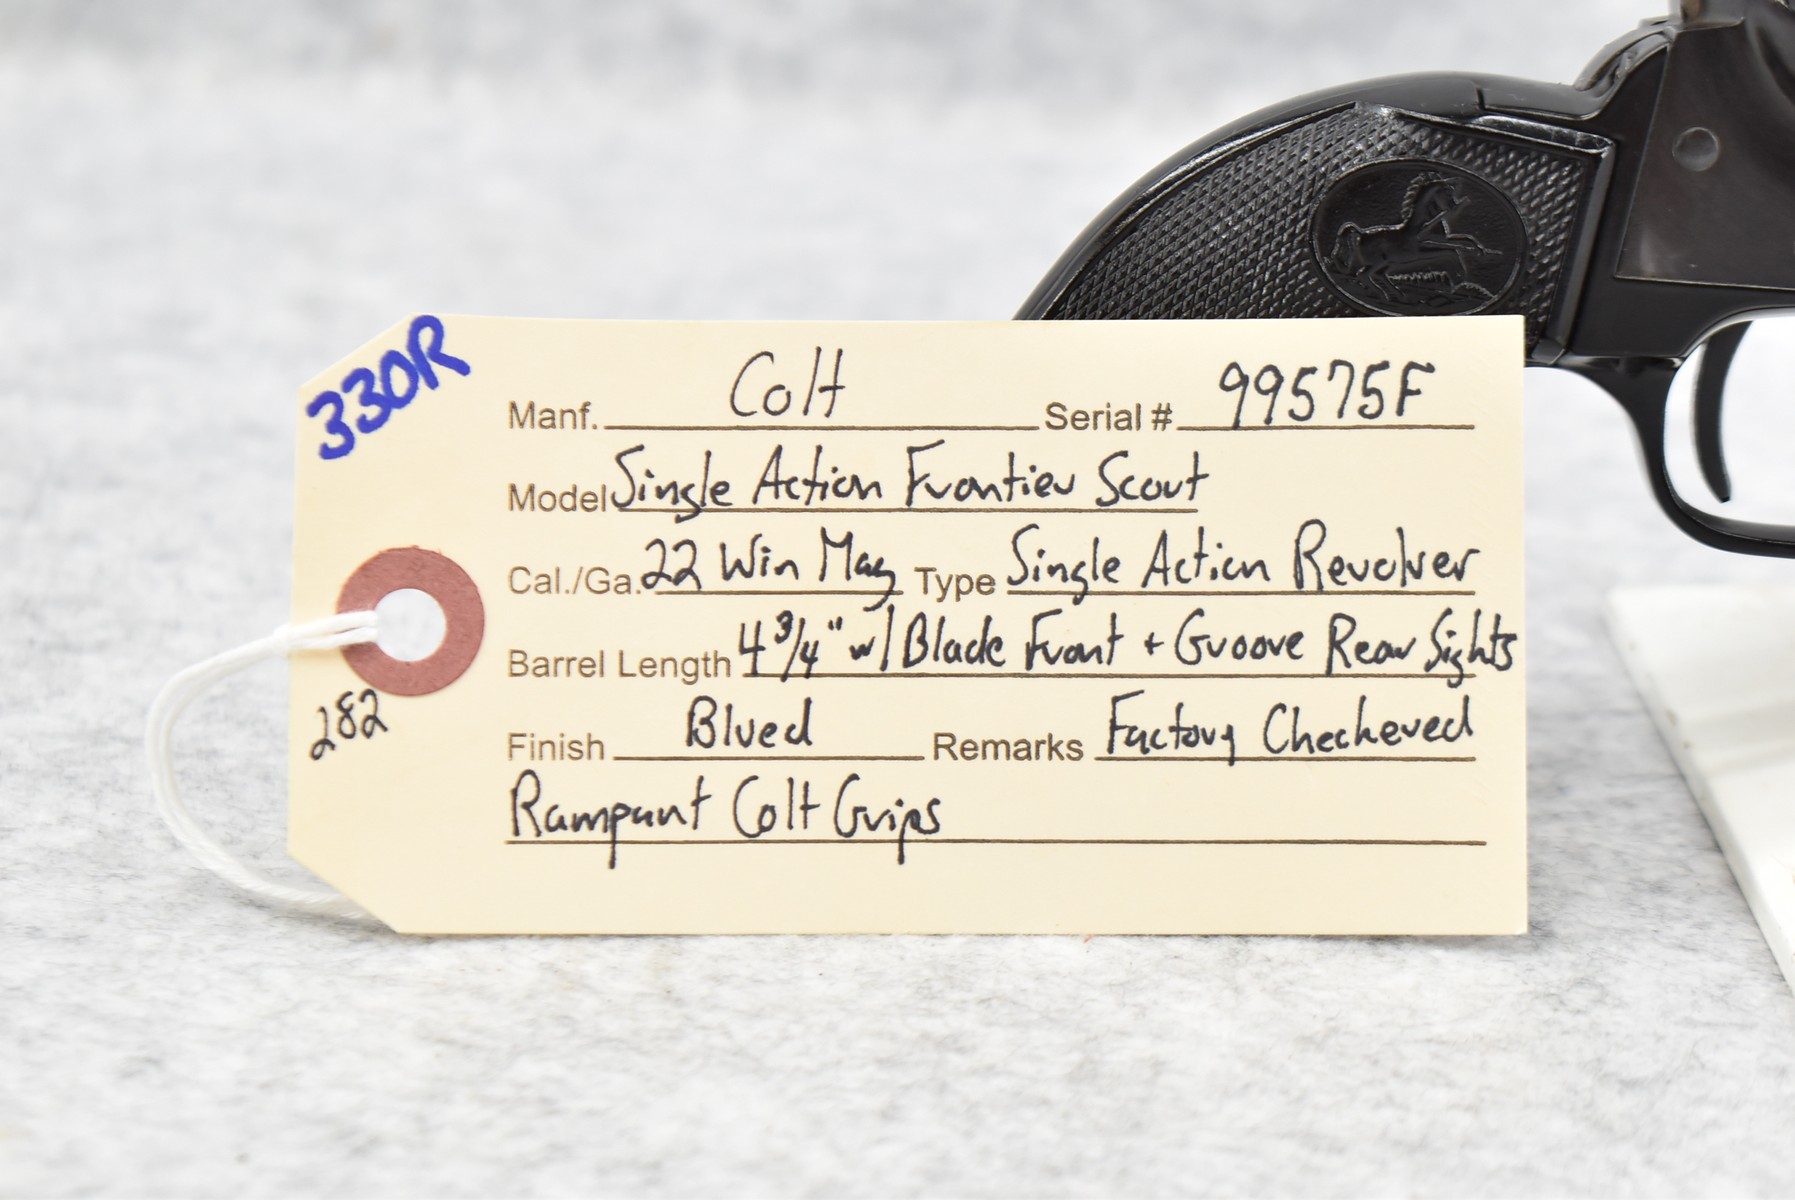 330R
Manf. Colt Serial # 99575F
Model Single Action Frontier Scout
Cal./Ga. 22 Win Mag Type Single Action Revolver
Barrel Length 4 3/4" w/ Blade Front + Groove Rear Sights
282
Finish Blued Remarks Factory Checkered
Rampant Colt Grips